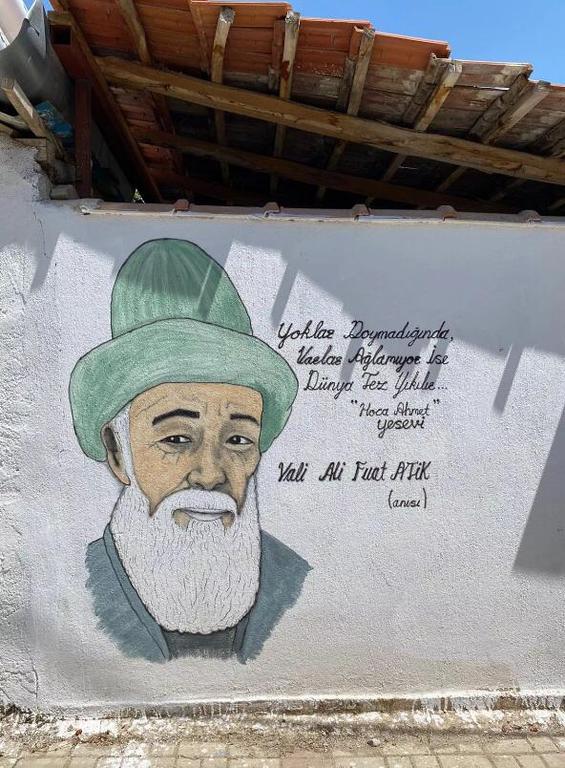 Yoklar Doymadığında,
Varlar Ağlamıyor İse
Dünya Tez Yıkılır...
"Hoca Ahmet"
yesevi
Vali Ali Fuat ATİK
(anısı)